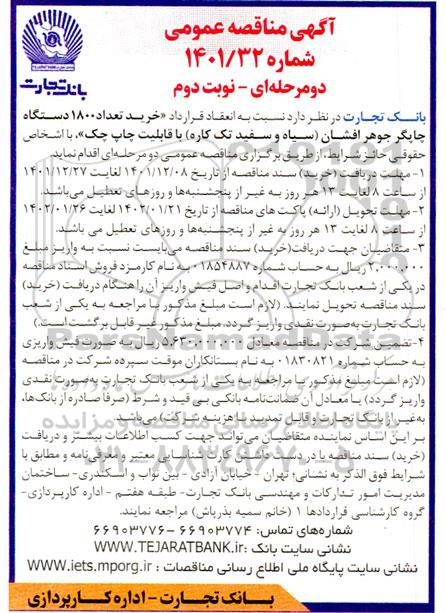 آگهی مناقصه عمومی
شماره ۱۴۰۱/۳۲
دومرحله‌ای - نوبت دوم
TEJARAT BANK
بانک تجارت
بانک تجارت در نظر دارد نسبت به انعقاد قرارداد «خرید تعداد ۱۸۰۰ دستگاه
چاپگر جوهر افشان (سیاه و سفید تک کاره) با قابلیت چاپ چک»، با اشخاص
حقوقی حائز شرایط، از طریق برگزاری مناقصه عمومی دو مرحله‌ای اقدام نماید.
۱- مهلت دریافت (خرید) سند مناقصه از تاریخ ۱۴۰۱/۱۲/۰۸ لغایت ۱۴۰۱/۱۲/۲۷
از ساعت ۸ لغایت ۱۳ هر روز به غیر از پنجشنبه‌ها و روزهای تعطیل می‌باشد.
۲- مهلت تحویل (ارائه) پاکت های مناقصه از تاریخ ۱۴۰۲/۰۱/۲۱ لغایت ۱۴۰۲/۰۱/۲۶
از ساعت ۸ لغایت ۱۳ هر روز به غیر از پنجشنبه‌ها و روزهای تعطیل می باشد.
۳- متقاضیان جهت دریافت(خرید) سند مناقصه می‌بایست نسبت به واریز مبلغ
۲،۰۰۰،۰۰۰ ریال به حساب شماره ۰۱۸۵۴۸۸۷ به نام کارمزد فروش اسناد مناقصه
در یکی از شعب بانک تجارت اقدام و اصل فیش واریز آن را هنگام دریافت (خرید)
سند مناقصه تحویل نمایند. (لازم است مبلغ مذکور با مراجعه به یکی از شعب
بانک تجارت به‌صورت نقدی واریز گردد. مبلغ مذکور غیر قابل برگشت است.)
۴- تضمین شرکت در مناقصه معادل ۵،۶۳۰،۰۰۰،۰۰۰ ریال به صورت فیش واریزی
به حساب شماره ۰۱۸۳۰۸۲۱ به نام بستانکاران موقت سپرده شرکت در مناقصه
(لازم است مبلغ مذکور با مراجعه به یکی از شعب بانک تجارت به‌صورت نقدی
واریز گردد) یا معادل آن ضمانت‌نامه بانکی بی قید و شرط (صرفا صادره از بانک‌ها،
به‌غیر از بانک تجارت و قابل تمدید با هزینه شرکت) می‌باشد.
بر این اساس نماینده متقاضیان می‌تواند جهت کسب اطلاعات بیشتر و دریافت
(خرید) سند مناقصه با در دست داشتن کارت شناسایی معتبر و معرفی‌نامه و مطابق با
شرایط فوق الذکر به نشانی: تهران - خیابان آزادی - بین نواب و اسکندری- ساختمان
مدیریت امور تدارکات و مهندسی بانک تجارت- طبقه هفتم - اداره کارپردازی-
گروه کارشناسی قراردادها ۱ (خانم سمیه بذرپاش) مراجعه نمایند.
شماره‌های تماس: ۶۶۹۰۳۷۷۴ - ۶۶۹۰۳۷۷۶
نشانی سایت بانک: WWW.TEJARATBANK.ir
نشانی سایت پایگاه ملی اطلاع رسانی مناقصات : www.iets.mporg.ir
بانک تجارت - اداره کارپردازی